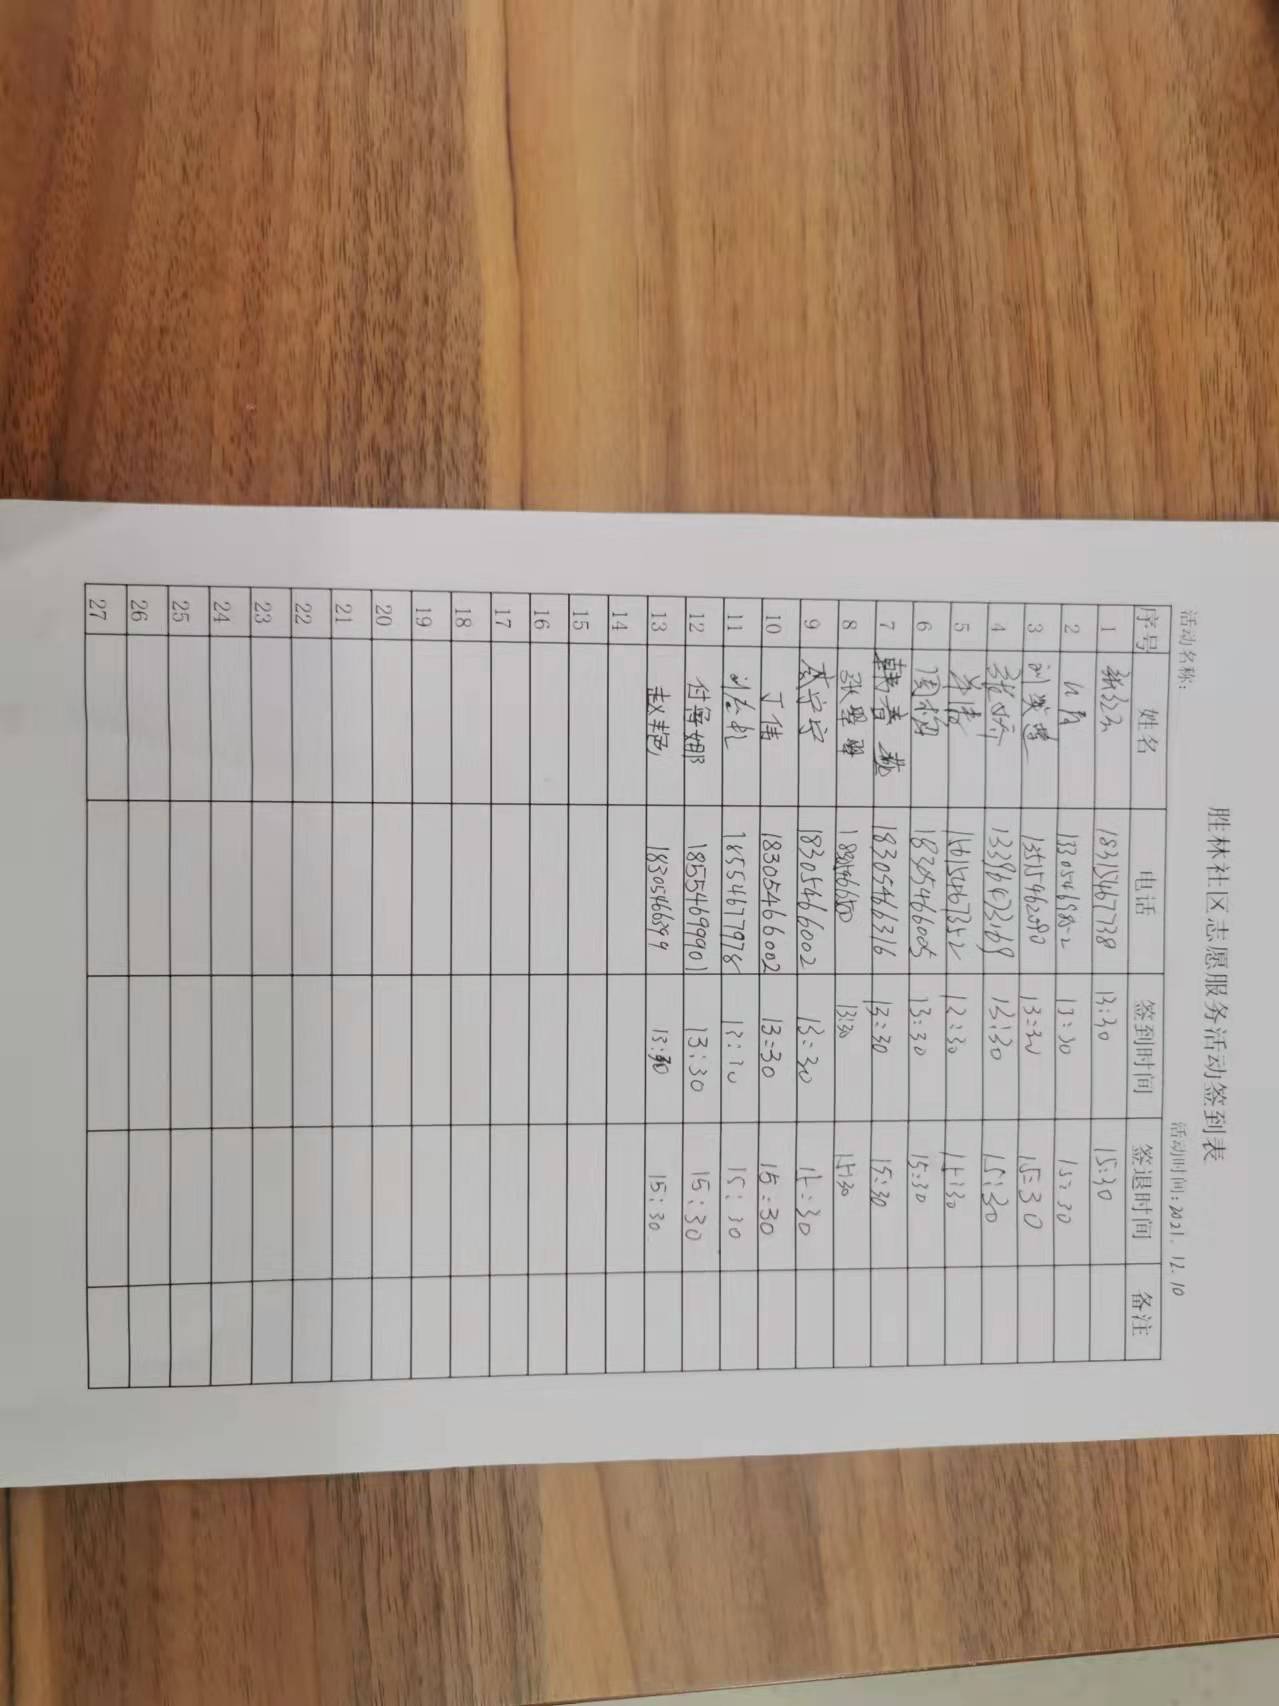 胜林社区志愿服务活动签到表
活动名称: 活动时间:2021.12.10
序号 姓名 电话 签到时间 签退时间 备注
1 18315467738 13:30 15:30
2 13:30 15:30
3 13:30 15:30
4 张娇 13:30 15:30
5 15615467352 13:30 15:30
6 周裕 18305466005 13:30 15:30
7 韩春 18305466316 13:30 15:30
8 张翠翠 13:30 15:30
9 宁宁 18305466002 13:30 15:30
10 丁倩 18305466002 13:30 15:30
11 18554677978 13:30 15:30
12 付海娜 18554699901 13:30 15:30
13 赵艳 18305466899 13:30 15:30
14
15
16
17
18
19
20
21
22
23
24
25
26
27